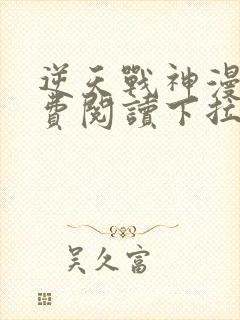 逆天戰神漫
費閱讀下拉
吳久富